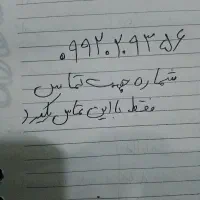 ۰۹۹۲۰۲۰۹۳۵۶
شماره جهت تماس
فقط با این تماس بگیرد